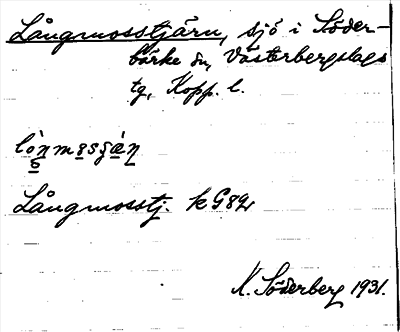 Långmosstjärn, sjö i Söder-
bärke sn, Västerbergslags
tg, Kopp. l.
Långmosstj. k G82
N. Söderberg 1931.